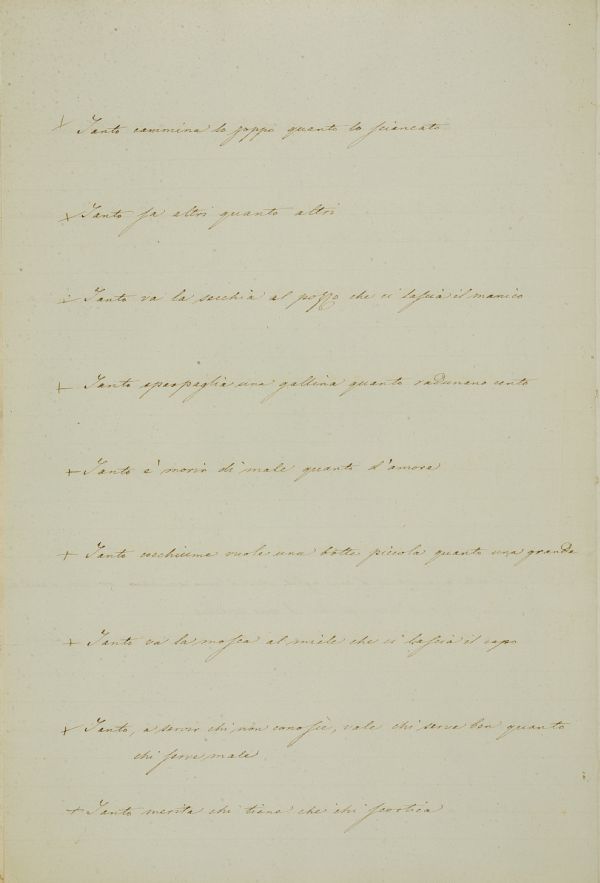 + Tanto cammina lo zoppo quanto lo sciancato
+ Tanto fa altri quanto altri
+ Tanto va la secchia al pozzo che ci lascia il manico
+ Tanto sparpaglia una gallina quanto radunano cento
+ Tanto è morir di male quanto d'amore
+ Tanto cocchiume vuole una botte piccola quanto una grande
+ Tanto va la mosca al miele che ci lascia il capo
+ Tanto, a servir chi non conosce, vale chi serve ben quanto
chi serve male
+ Tanto merita chi tiene che chi scortica